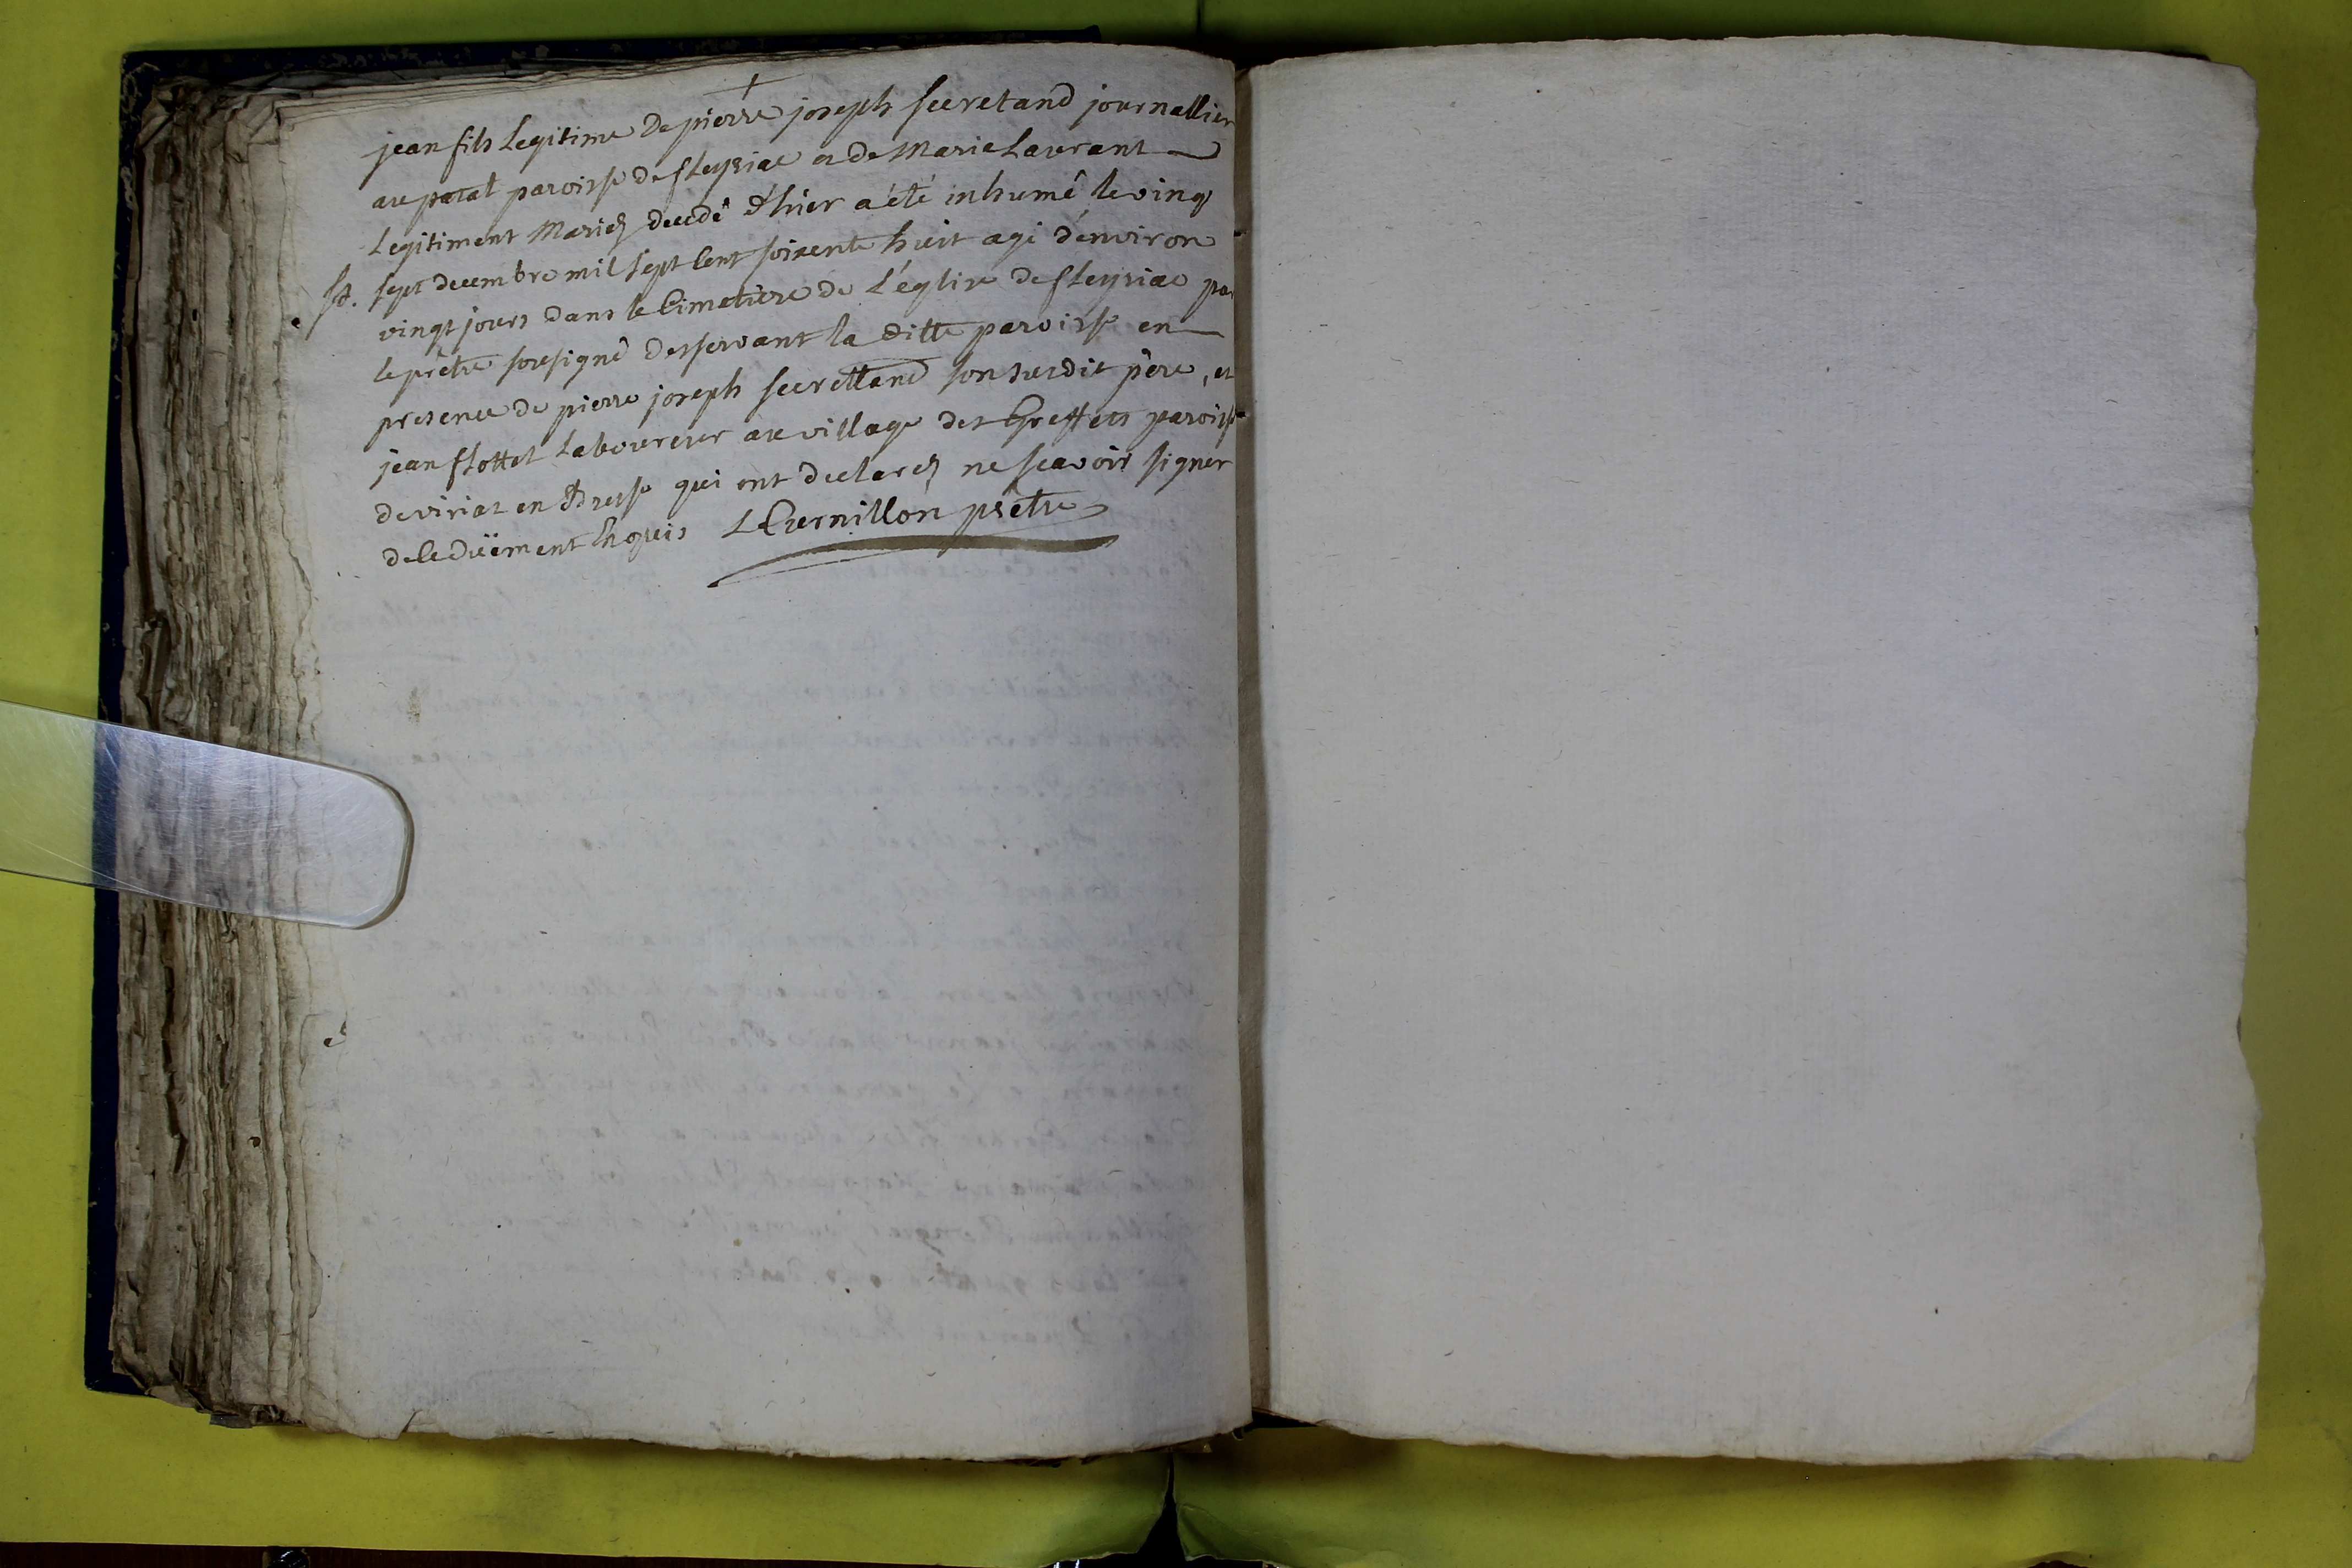 †
jean fils Legitime De pierre joseph secretand journallier
au patal paroisse de fleyriac et de Marie Laurant
Legitiment Mariez decedé d'hier a été inhumé le vingt
St. sept decembre mil sept cent soixente huit agé d'environ
vingt jours dans le Cimetiere de L'église de fleyriac par
le prêtre sousigné desservant la ditte paroisse en
presence de pierre joseph secrettand son susdit père, et
jean flottet Laboureur au village des Greffets paroisse
de viriat en Bresse qui ont declarez ne scavoir signer
de ce duëment Enquis LCurnillon prêtre